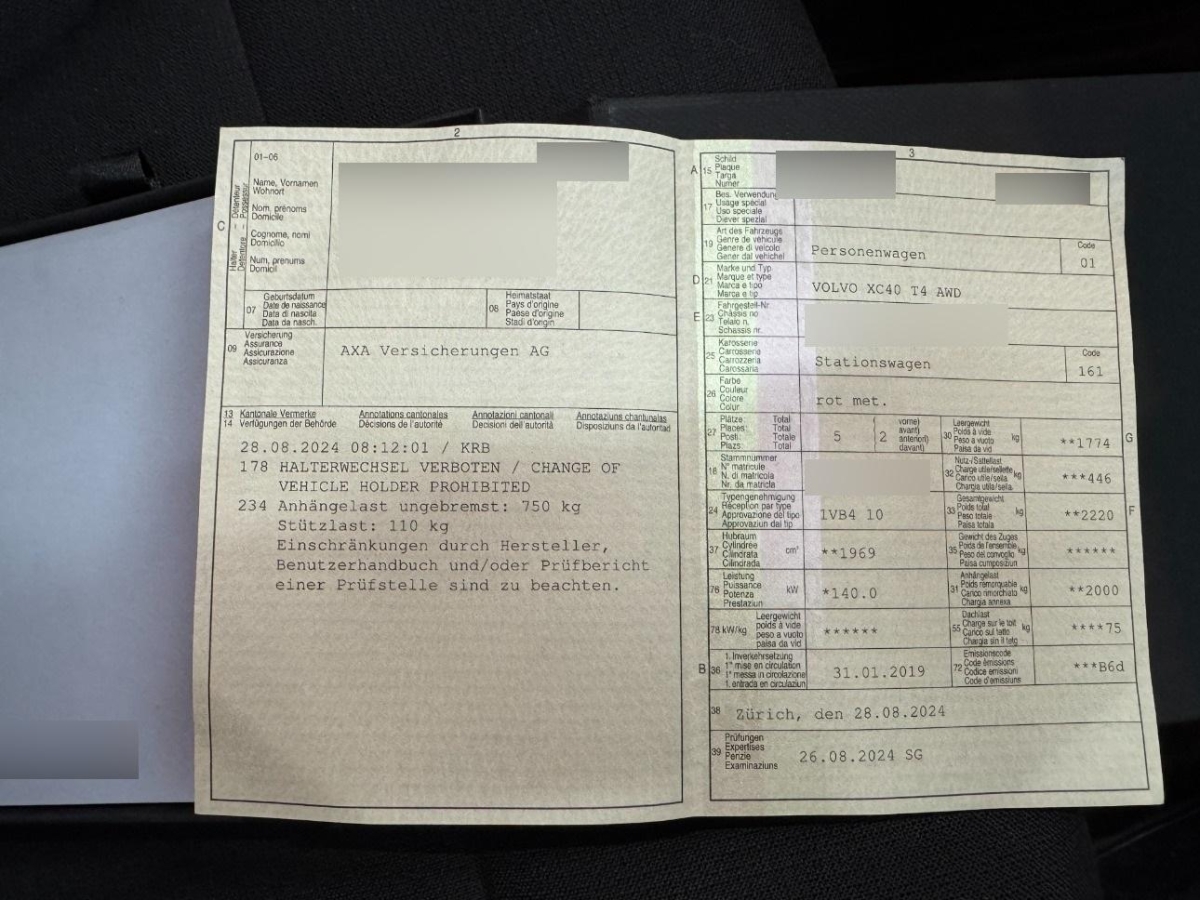 2
01-06
Name, Vornamen
Wohnort
Nom, prénoms
Domicile
Cognome, nomi
Domicilio
Num, prenums
Domicil
C
Halter Détenteur
Detentore – Possessur
07
Geburtsdatum
Date de naissance
Data di nascita
Data da nasch.
08
Heimatstaat
Pays d'origine
Paese d'origine
Stadi d'origin
09
Versicherung
Assurance
Assicurazione
Assicuranza
AXA Versicherungen AG
13 Kantonale Vermerke Annotations cantonales Annotazioni cantonali Annotaziuns chantunalas
14 Verfügungen der Behörde Décisions de l'autorité Decisioni dell'autorità Disposiziuns da l'autoritad
28.08.2024 08:12:01 / KRB
178 HALTERWECHSEL VERBOTEN / CHANGE OF
VEHICLE HOLDER PROHIBITED
234 Anhängelast ungebremst: 750 kg
Stützlast: 110 kg
Einschränkungen durch Hersteller,
Benutzerhandbuch und/oder Prüfbericht
einer Prüfstelle sind zu beachten.
3
A 15
Schild
Plaque
Targa
Numer
17
Bes. Verwendung
Usage spécial
Uso speciale
Diever spezial
19
Art des Fahrzeugs
Genre de véhicule
Genere di veicolo
Gener dal vehichel
Personenwagen
Code
01
D 21
Marke und Typ
Marque et type
Marca e tipo
Marca e tip
VOLVO XC40 T4 AWD
E 23
Fahrgestell-Nr.
Châssis no
Telaio n.
Schassis nr.
25
Karosserie
Carrosserie
Carrozzeria
Carossaria
Stationswagen
Code
161
26
Farbe
Couleur
Colore
Colur
rot met.
27
Plätze: Total
Places: Total
Posti: Totale
Plazs: Total
5
2
vorne)
avant)
anteriori)
davant)
30
Leergewicht
Poids à vide
Peso a vuoto
Paisa da vid
kg
**1774
G
18
Stammnummer
N° matricule
N. di matricola
Nr. da matricla
32
Nutz-/Sattellast
Charge utile/sellette
Carico utile/sella
Chargia utila/sella
kg
***446
24
Typengenehmigung
Réception par type
Approvazione del tipo
Approvaziun dal tip
1VB4 10
33
Gesamtgewicht
Poids total
Peso totale
Paisa totala
kg
**2220
F
37
Hubraum
Cylindrée
Cilindrata
Cilindrada
cm³
**1969
35
Gewicht des Zuges
Poids de l'ensemble
Peso del convoglio
Paisa cumposiziun
kg
******
76
Leistung
Puissance
Potenza
Prestaziun
kW
*140.0
31
Anhängelast
Poids remorquable
Carico rimorchiato
Chargia annexa
kg
**2000
78 kW/kg
Leergewicht
poids à vide
peso a vuoto
paisa da vid
******
55
Dachlast
Charge sur le toit
Carico sul tetto
Chargia sin il tetg
kg
****75
B 36
1. Inverkehrsetzung
1re mise en circulation
1a messa in circolazione
1. entrada en circulaziun
31.01.2019
72
Emissionscode
Code émissions
Codice emissioni
Code d'emissiuns
***B6d
38
Zürich, den 28.08.2024
39
Prüfungen
Expertises
Perizie
Examinaziuns
26.08.2024 SG